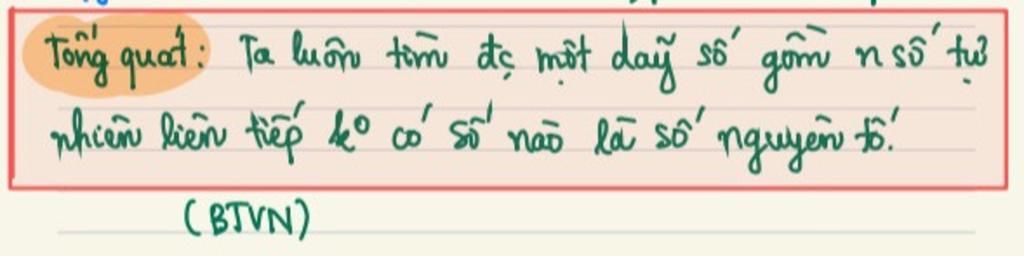 Tổng quát: Ta luôn tìm đc một dãy số gồm n số tự
nhiên liên tiếp ko có số nào là số nguyên tố.
(BTVN)